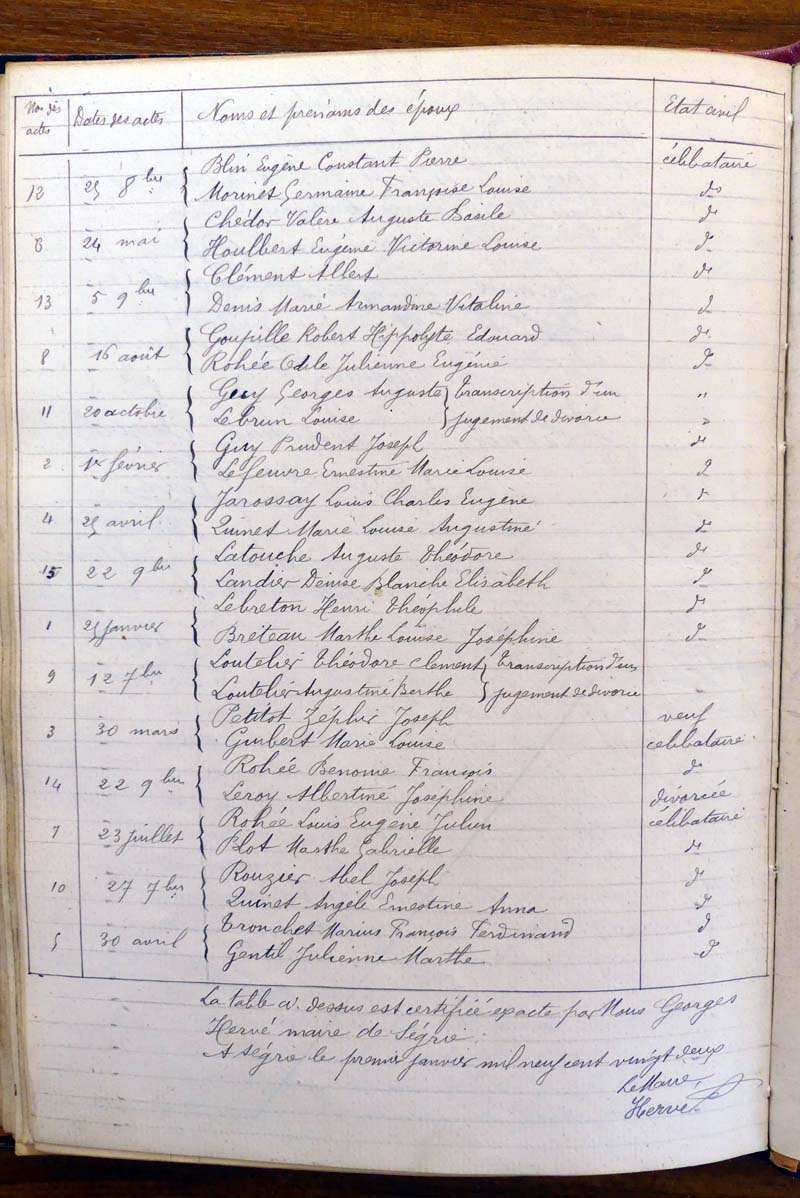 Nos des actes Dates des actes Noms et prénoms des époux Etat civil
Blin Eugène Constant Pierre célibataire
12 25 8bre Morinet Germaine Françoise Louise do
Chédor Valère Auguste Basile do
6 24 mai Houlbert Eugénie Victorine Louise do
Clément Albert do
13 5 9bre Denis Marie Armandine Vitaline do
Goupille Robert Hippolyte Edouard do
8 16 août Rohée Odile Julienne Eugénie do
Guy Georges Auguste transcription d'un "
11 20 octobre Lebrun Louise jugement de divorce "
Guy Prudent Joseph do
2 1er février Lefeuvre Ernestine Marie Louise do
Jarossay Louis Charles Eugène do
4 25 avril Quinet Marie Louise Augustine do
Latouche Auguste Théodore do
15 22 9bre Landier Denise Blanche Elisabeth do
Lebreton Henri Théophile do
1 25 janvier Breteau Marthe Louise Joséphine do
Loutelier Théodore Clément transcription d'un
9 12 7bre Loutelier Augustine Berthe jugement de divorce
Petitot Zéphir Joseph veuf
3 30 mars Guibert Marie Louise célibataire
Rohée Benome François do
14 22 9bre Leroy Albertine Joséphine divorcée
Rohée Louis Eugène Julien célibataire
7 23 juillet Blot Marthe Gabrielle do
Rouzier Abel Joseph do
10 27 7bre Quinet Angèle Ernestine Anna do
Tronchet Marius François Ferdinand do
5 30 avril Gentil Julienne Marthe do
La table ci-dessus est certifiée exacte par Nous Georges
Hervé maire de Ségrie.
A Ségrie le premier janvier mil neuf cent vingt deux
Le Maire,
Hervé